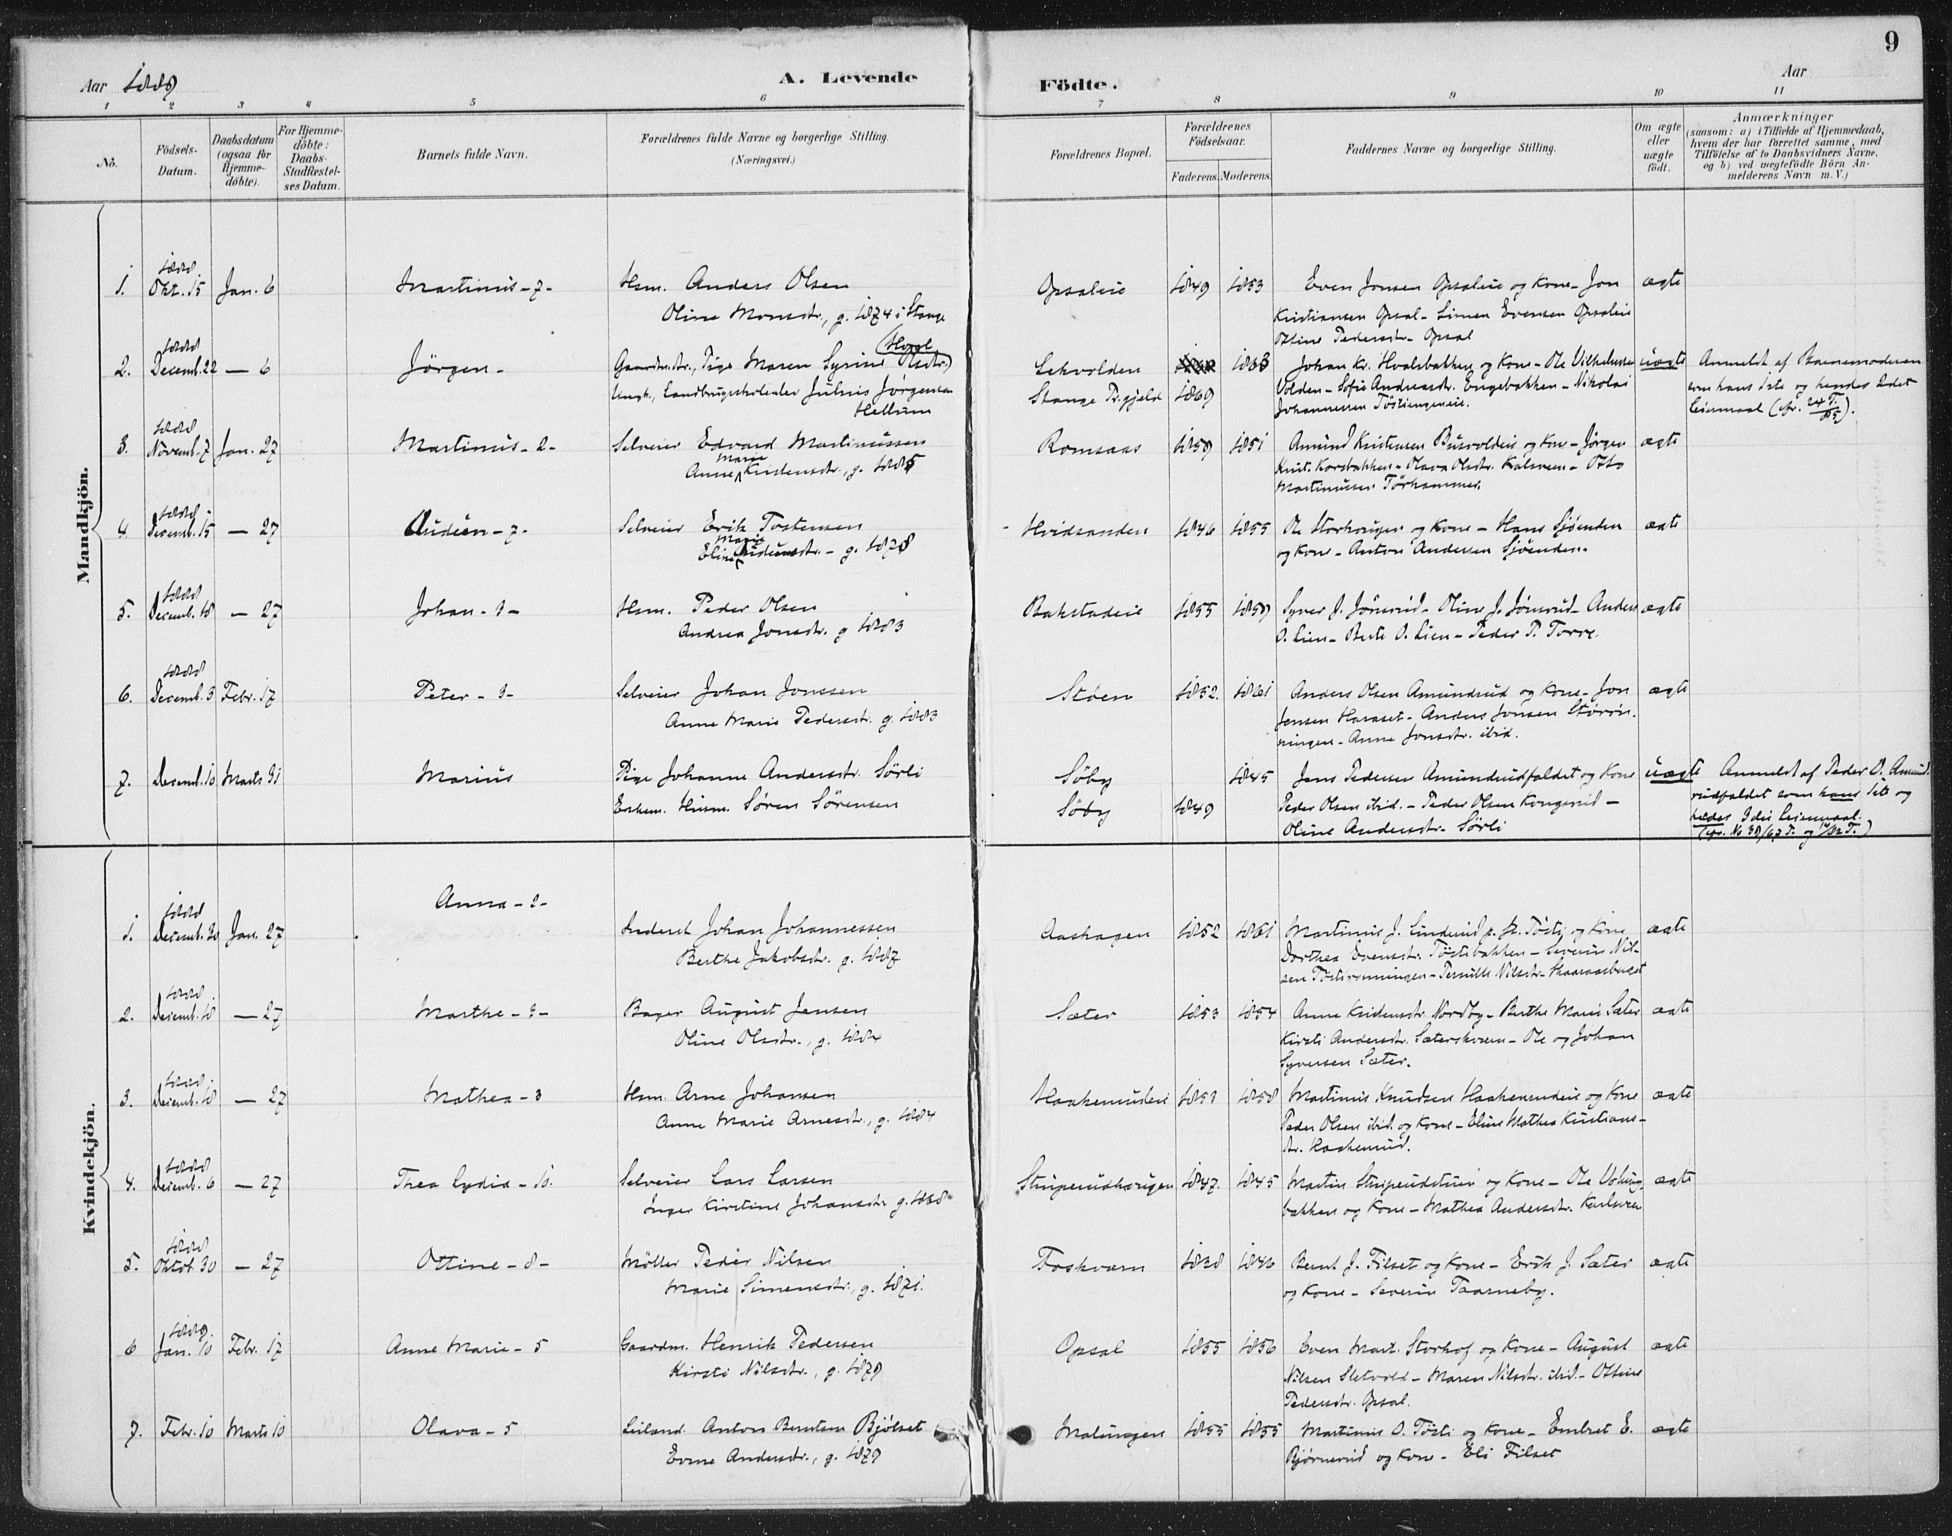 9
Aar 1889 A. Levende Födte. Aar
1 2 3 4 5 6 7 8 9 10 11
No.
Födsels-
Datum.
Daabsdatum
(ogsaa for
Hjemme-
döbte).
For Hjemme-
döbte:
Daabs-
Stadfæstel-
ses Datum.
Barnets fulde Navn.
Forældrenes fulde Navne og borgerlige Stilling.
(Næringsvei.)
Forældrenes Bopæl.
Forældrenes
Födselsaar.
Faderens. Moderens.
Faddernes Navne og borgerlige Stilling.
Om ægte
eller
uægte
födt.
Anmærkninger
(saasom: a) i Tilfælde af Hjemmedaab,
hvem der har forrettet samme, med
Tilföielse af to Daabsvidners Navne,
og b) ved uægtefödte Börn An-
melderens Navn m. V.)
Mandkjön.
1888
1. Okt. 15 Jan. 6 Martinus - 7 - Hsm. Anders Olsen Opsaleie 1849 1853 Even Jonsen Opsaleie og Kone - Jon ægte
Oline Monsdtr., g. 1874 i Stange Kristiansen Opsal - Simen Evensen Opsaleie
Ottine Pedersdtr. Opsal
1888
2. Decemb. 22 — 6 Jörgen - Gaardmdtr., Pige Maren Syrine Olsdtr. Sekvolden 1863 Johan Kr. Hvalsbakken og Kone - Ole Vilhelmsen uægte Anmeldt af Barnemoderen
Ungk., Landbrugsskoleelev Julius Jörgensen Stange Pr.gjeld 1869 Volden - Sofie Andreasdtr. Engebakken - Nikolai som hans 1ste og hendes 2det
Hellum Johannessen Töstiengeneie. Leiermaal
1888
3. Novemb. 7 Jan. 27 Martinus - 2 - Selveier Edvard Martinussen Romsaas 1859 1851 Amund Kristensen Busvoldeie og Kone - Jörgen ægte
Anne Marie Kristensdtr., g. 1885 Krist. Korsbakken - Olava Olsdtr. Kalsveen - Otto
Martinussen Törhammer.
1888
4. Decemb. 15 — 27 Audien - 7 - Selveier Erik Tostensen Hvidsanden 1846 1855 Ole Storhaugen og Kone - Hans Sjöenden ægte
Eline Marie Audiensdtr. - g. 1878 og Kone - Anton Andersen Sjöenden.
1888
5. Decemb. 18 — 27 Johan - 3 - Hsm. Peder Olsen Bakstadeie 1855 1859 Syver J. Jönsrud - Oline J. Jönsrud - Anders ægte
Andrea Jonsdtr. g. 1883 O. Lien - Berte O. Lien - Peder P. Torre.
1888
6. Decemb. 3 Febr. 17 Peter - 3 - Selveier Johan Jonssen Stöen 1852. 1861 Anders Olsen Amundrud og Kone - Jon ægte
Anne Marie Pedersdtr. g. 1883 Jensen Haraset - Anders Jonsen Störön-
ningen - Anne Jonsdtr. ibid.
7. Decemb. 10 Marts 31 Marius Pige Johanne Andersdtr. Sörli Söby 1845 Jens Pedersen Amundrudfaldet og Kone uægte Anmeldt af Peder O. Amund-
Enkem. Husm. Sören Sörensen Söby 1849 Peder Olsen ibid. - Peder Olsen Kongsrud - rudfaldet som hans 1ste og
Oline Andersdtr. Sörli hendes 3die Leiermaal.
Kvindekjön.
Anna - 2 -
1888
1. Decemb. 30 Jan. 27 Inderst Johan Johannessen Aashagen 1852 1861 Martinus J. Linderud p. pl. Tösti og Kone ægte
Berthe Jakobsdtr. g. 1887 Dorthea Evensdtr. Töstibakken - Severin Nil-
sen Töstirönningen - Pernille Nilsdtr. Haaraasberget
1888
2. Decemb. 18 — 27 Marthe - 3 - Bager August Jensen Sæter 1853 1854 Anne Kristensdtr. Nordby - Berthe Marie Sæter ægte
Oline Olsdtr., g. 1884 Kirsti Andersdtr. Sæterskværn - Ole og Johan
Syversen Sæter.
1888.
3. Decemb. 18 — 27 Mathea - 3 Hsm. Arne Johansen Haakenrudeie 1853 1858 Martinus Knudsen Haakenrudeie og Kone ægte
Anne Marie Arnesdtr., g. 1884 Peder Olsen ibid. og Kone - Eline Mathea Kristians-
dtr. Haakenrud.
1888
4. Decemb. 6 — 27 Thea Lydia - 10. Selveier Lars Larsen Striperudhaugen 1847. 1845 Martin Striperudstuen og Kone - Ole Vestby- ægte
Inger Kirstine Johansdtr g. 1868 bakken og Kone - Mathea Andersdtr. Karlsveen
1888
5. Oktob. 30 — 27 Ottine - 8 - Möller Peder Nilsen Foskværn 1838 1846 Bernt J. Filset og Kone - Erik J. Sæter ægte
Marie Simensdtr., g. 1871. og Kone - Severin Taarneby.
1889.
6 Jan. 10 Febr. 17 Anne Marie - 5 Gaardm. Henrik Pedersen Opsal 1855 1856 Even Mart. Storhof og Kone - August ægte
Kirsti Nilsdtr., g. 1879 Nilsen Sletvold - Maren Nilsdtr. ibid. - Ottine
Pedersdtr. Opsal.
7. Febr. 10 Marts 10 Olava - 5 Leiland. Anton Berntsen Bjölset Malungen 1855 1855 Martinus O. Tösti og Kone - Embret E. ægte
Evine Andersdtr., g. 1879 Björnerud og Kone - Eli Filset